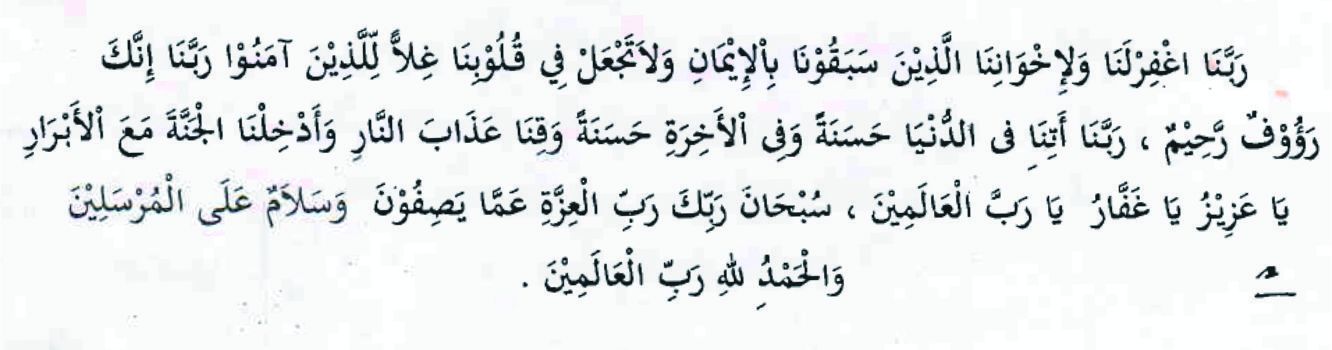 رَبَّنَا اغْفِرْلَنَا وَلِإِخْوَانِنَا الَّذِيْنَ سَبَقُوْنَا بِاْلإِيْمَانِ وَلاَتَجْعَلْ فِي قُلُوْبِنَا غِلاًّ لِّلَّذِيْنَ آمَنُوْا رَبَّنَا إِنَّكَ
رَؤُوْفٌ رَّحِيْمٌ ، رَبَّنَا أَتِنَا فى الدُّنْيَا حَسَنَةً وَفِى اْلأَخِرَةِ حَسَنَةً وَقِنَا عَذَابَ النَّارِ وَأَدْخِلْنَا الْجَنَّةَ مَعَ اْلأَبْرَارِ
يَا عَزِيْزُ يَا غَفَّارُ يَا رَبَّ الْعَالَمِيْنَ ، سُبْحَانَ رَبِّكَ رَبِّ الْعِزَّةِ عَمَّا يَصِفُوْنَ وَسَلاَمٌ عَلَى الْمُرْسَلِيْنَ
وَالْحَمْدُ ِللهِ رَبِّ الْعَالَمِيْنَ .